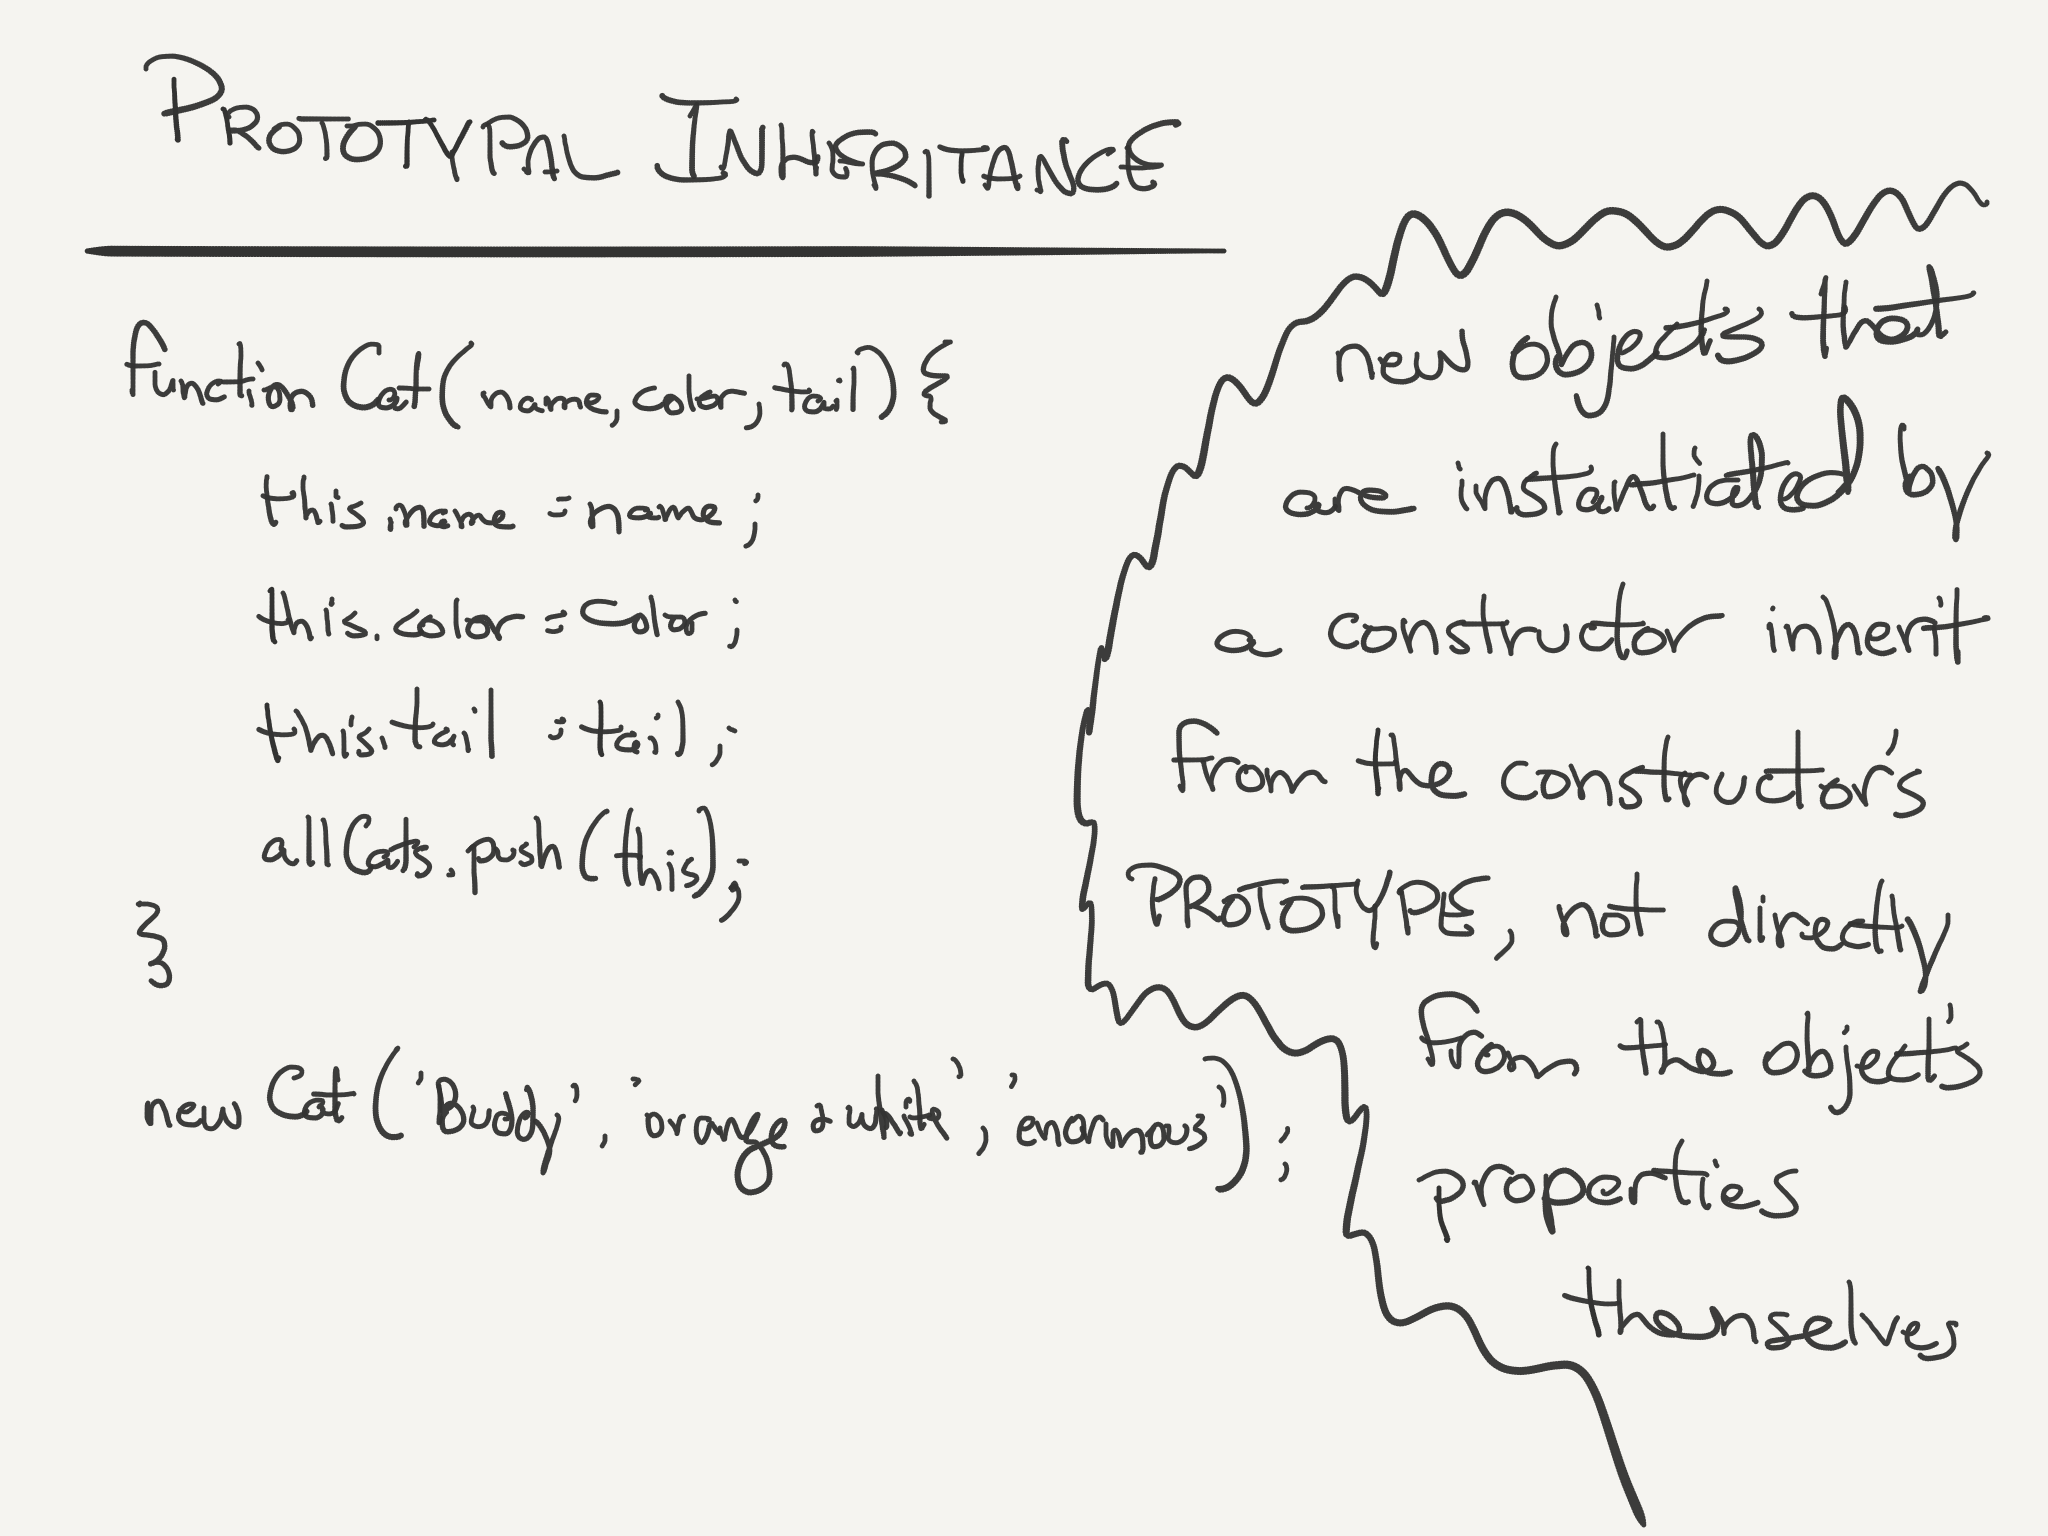 PROTOTYPAL INHERITANCE
function Cat(name, color, tail) {
this.name = name;
this.color = color;
this.tail = tail;
allCats.push(this);
}
new Cat('Buddy', 'orange & white', 'enormous');
new objects that
are instantiated by
a constructor inherit
from the constructor's
PROTOTYPE, not directly
from the object's
properties
themselves